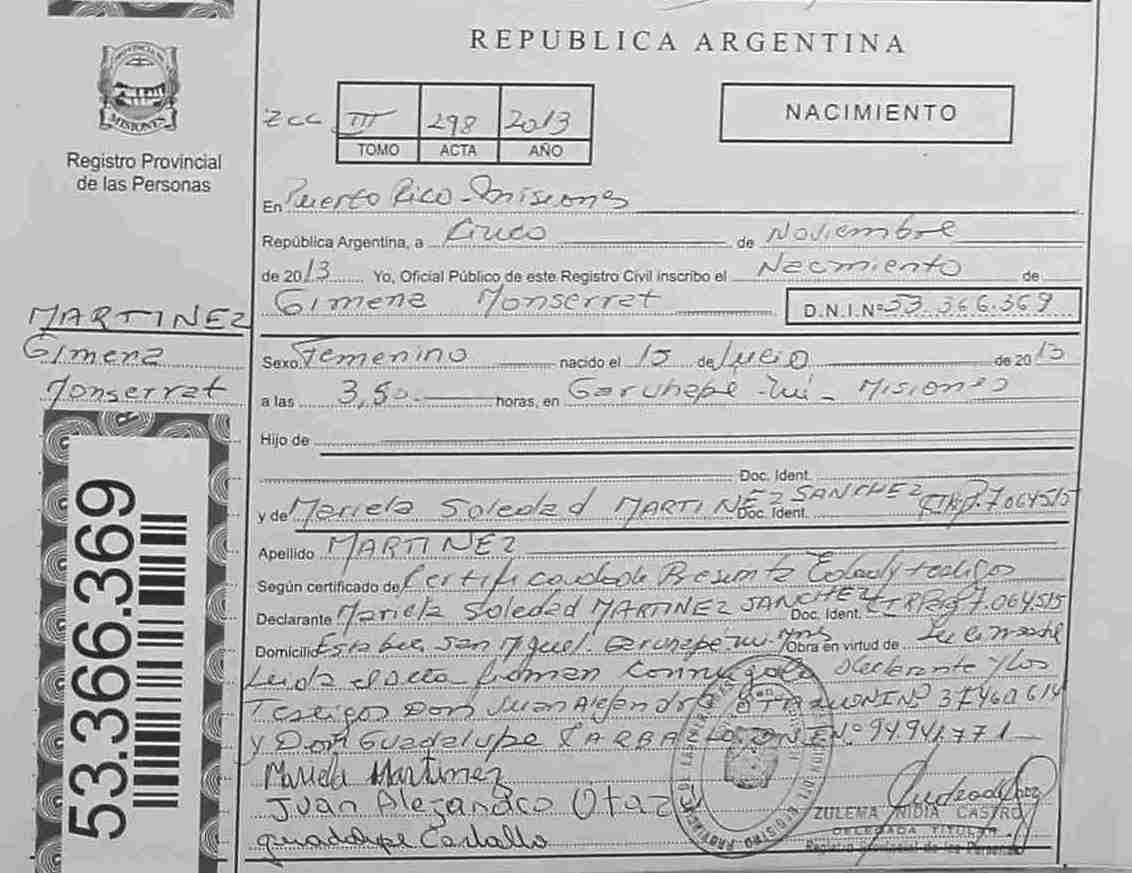 REPUBLICA ARGENTINA
PROVINCIA DE
MISIONES
Registro Provincial
de las Personas
ZCC III 298 2013
TOMO ACTA AÑO
NACIMIENTO
En Puerto Rico - Misiones
República Argentina, a Cinco de Noviembre
de 2013 Yo, Oficial Público de este Registro Civil inscribo el Nacimiento de
Gimena Monserrat D.N.I.Nº 53.366.369
MARTINEZ
Gimena
Monserrat
53.366.369
Sexo Femenino nacido el 15 de Julio de 2013
a las 3,50 horas, en Garuhapé-Mi - Misiones
Hijo de
Doc. Ident.
y de Mariela Soledad MARTINEZ SANCHEZ Doc. Ident. 7.064515
Apellido MARTINEZ
Según certificado de Presunta Edad y testigos
Declarante Mariela Soledad MARTINEZ SANCHEZ Doc. Ident. 7.064.515
Domicilio San Miguel. Garuhapé-Mi. Mnes Obra en virtud de
Leida el acta firman declarante y los
Testigos Don Juan Alejandro 37460614
y Doñ Guadalupe Nº 94941.771
Mariela Martinez
Juan Alejandro Otazu
guadalupe Carballo
ZULEMA NIDIA CASTRO
DELEGADA TITULAR
Registro Provincial de las Personas